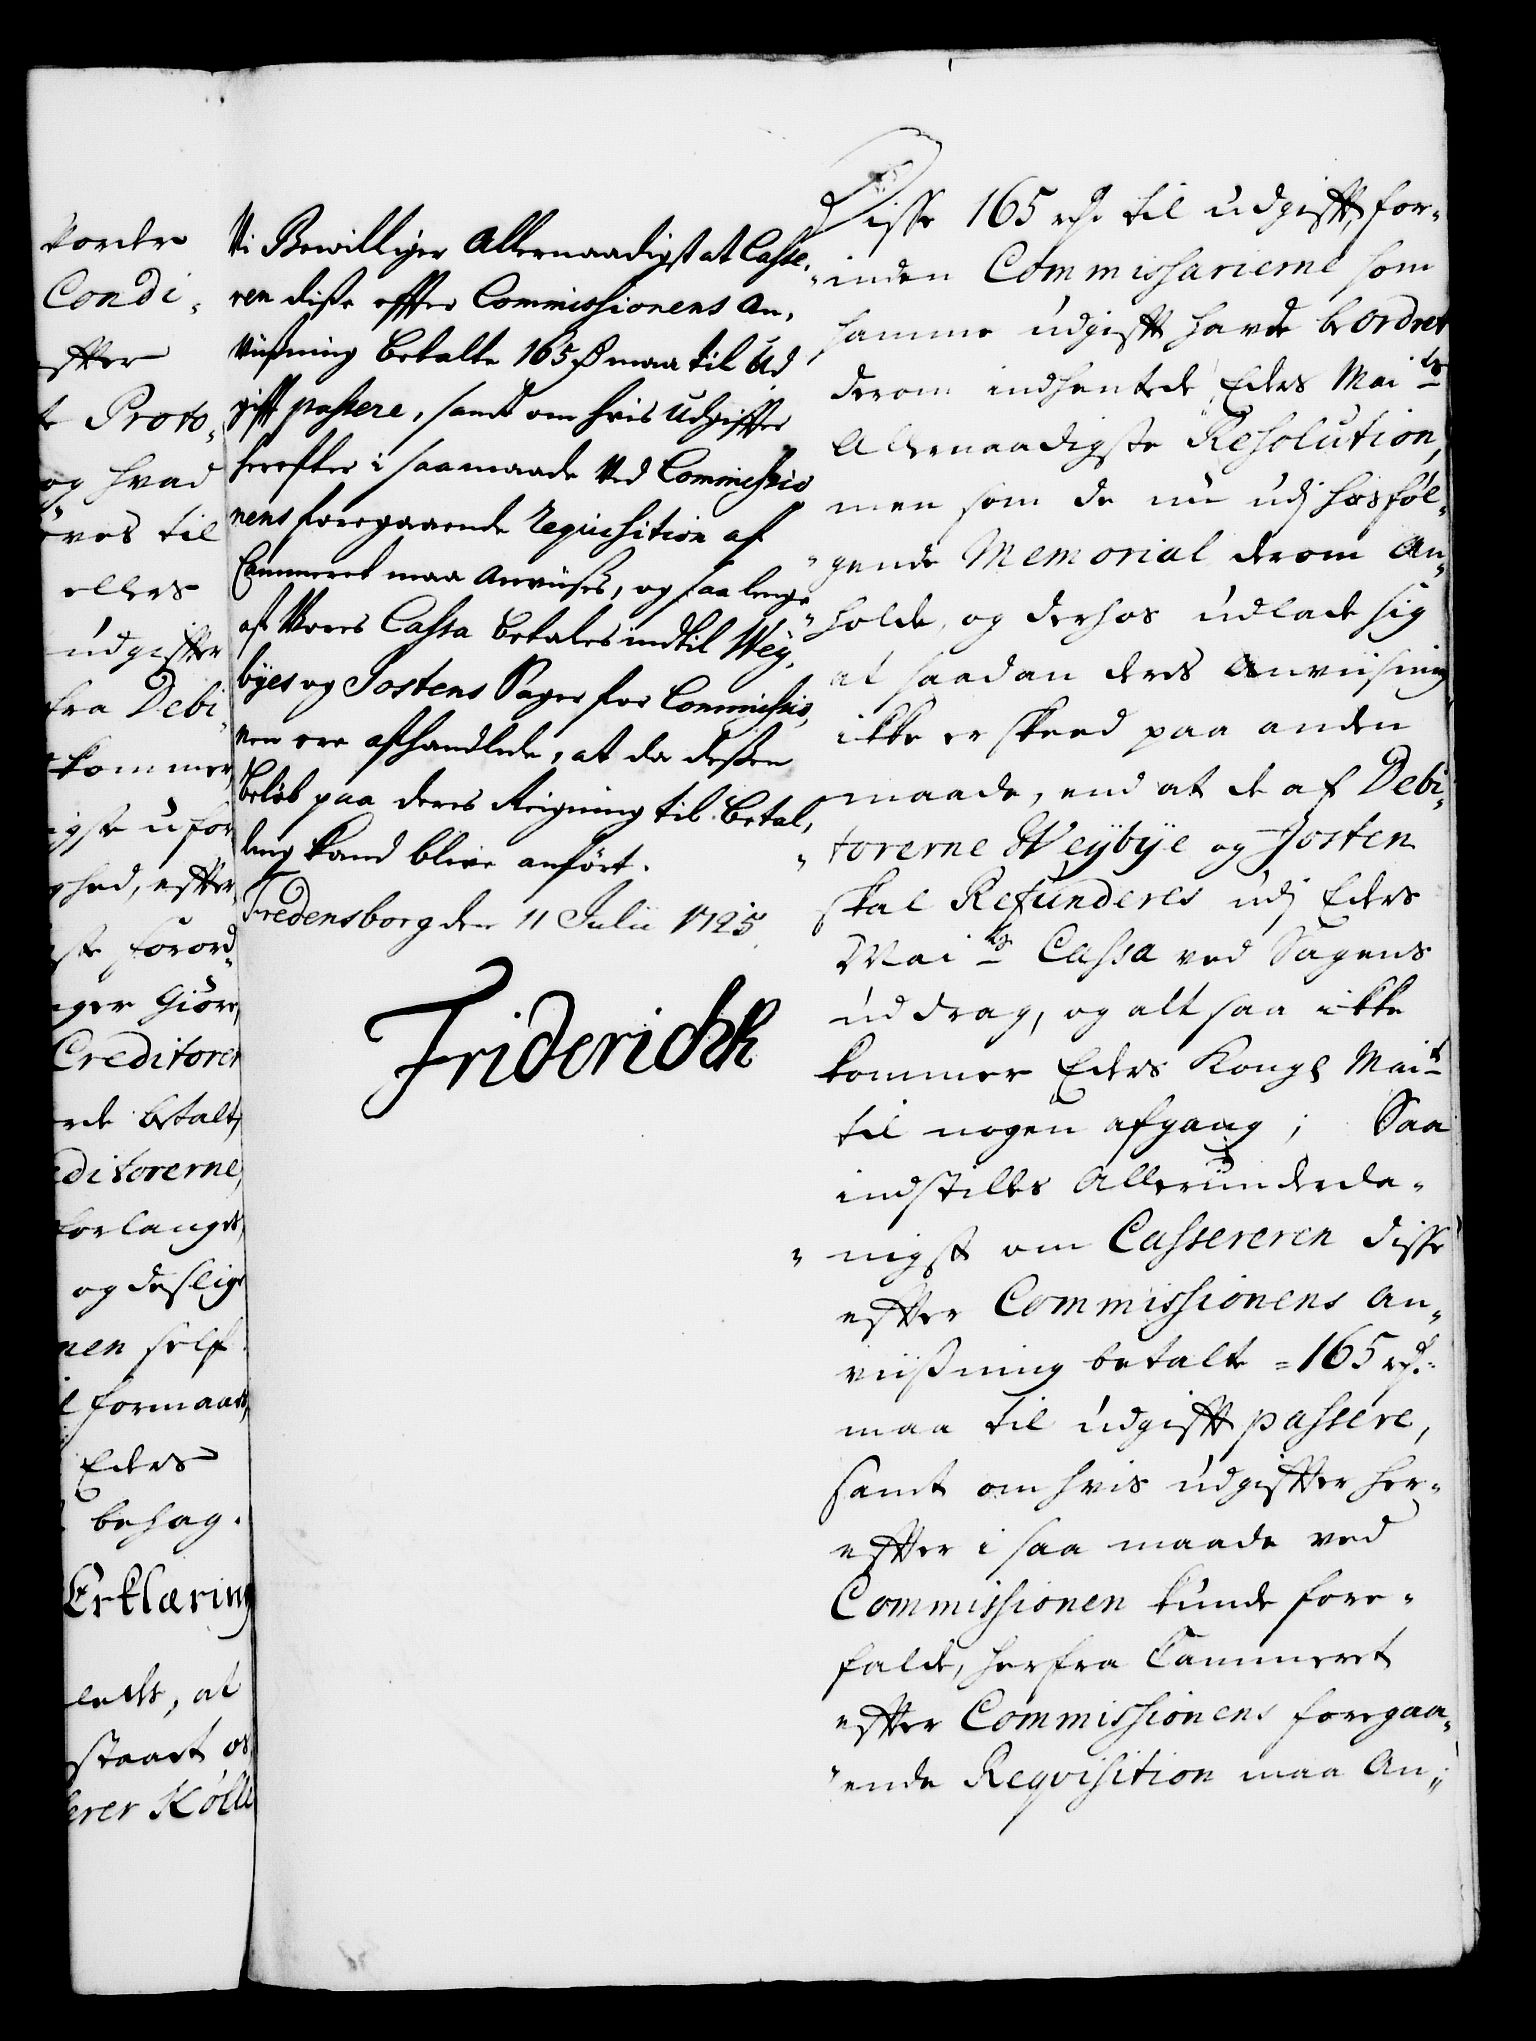 vordere
Condi-
effter
t Proto-
og hvad
öres til
ellers
udgiffter
fra Debi-
kommer,
igst ufor
ghed, effter
ste forord-
nger Giöre,
Creditorer
rde betalt,
editorerne,
forlanges,
og deslige
nen self
l formaaed,
Eders
behag.
Erklæring
ledes, at
staaet os,
erer Kölle
Vi Bewilliger Allernaadigst at Casse-
reren disse effter Commissionens An-
viisning betalte 165 rdr maa til Ud
gifft passere, samt om hvis Udgiffter
hereffter i saa maade Ved Commissio
nens foregaaende Requisition af
Cammeret maa Anviises, og saa lenge
af Vores Cassa betales indtil Wey-
byes og Jostens Sager for Commissio-
nen ere afhandlede, at da dessen
Belöb paa deres Reigning til betal-
ling kand blive anfört.
Fredensborg den 11 Julii 1725.
Friderich R
Disse 165 rdr. til udgifft, for-
inden Commissarierne som
samme udgifft havde beordret
derom indhentede Eders Maits
Allernaadigste Resolution,
men som de nu udj hosföl-
gende Memorial derom An-
holde, og derhos udlade sig
at saadan deres Anviisning
ikke er skeed paa anden
maade, end at de af Debi-
torerne Weybye og Josten
skal Refunderes udj Eders
Maits Cassa ved Sagens
uddrag, og altsaa ikke
kommer Eders Kongl Mait
til nogen afgang; Saa
indstilles Allerunderda-
nigst om Cassereren disse
effter Commissionens An-
viisning betalte = 165 rdr:
maa til udgifft passere,
samt om hvis udgiffter her-
effter i saa maade ved
Commissionen kunde fore-
falde, herfra Cammeret
effter Commissionens foregaa-
ende Reqvisition maa An-